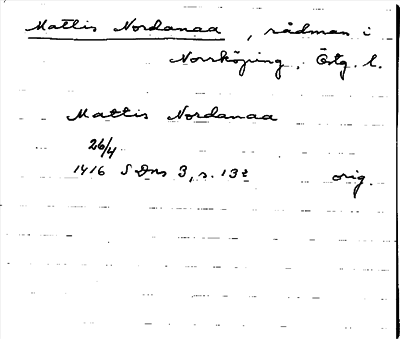 Mattis Nordanaa, rådman i
Norrköping, Östg. l.
Mattis Nordanaa
26/4
1416 SDns 3, s. 132
orig.